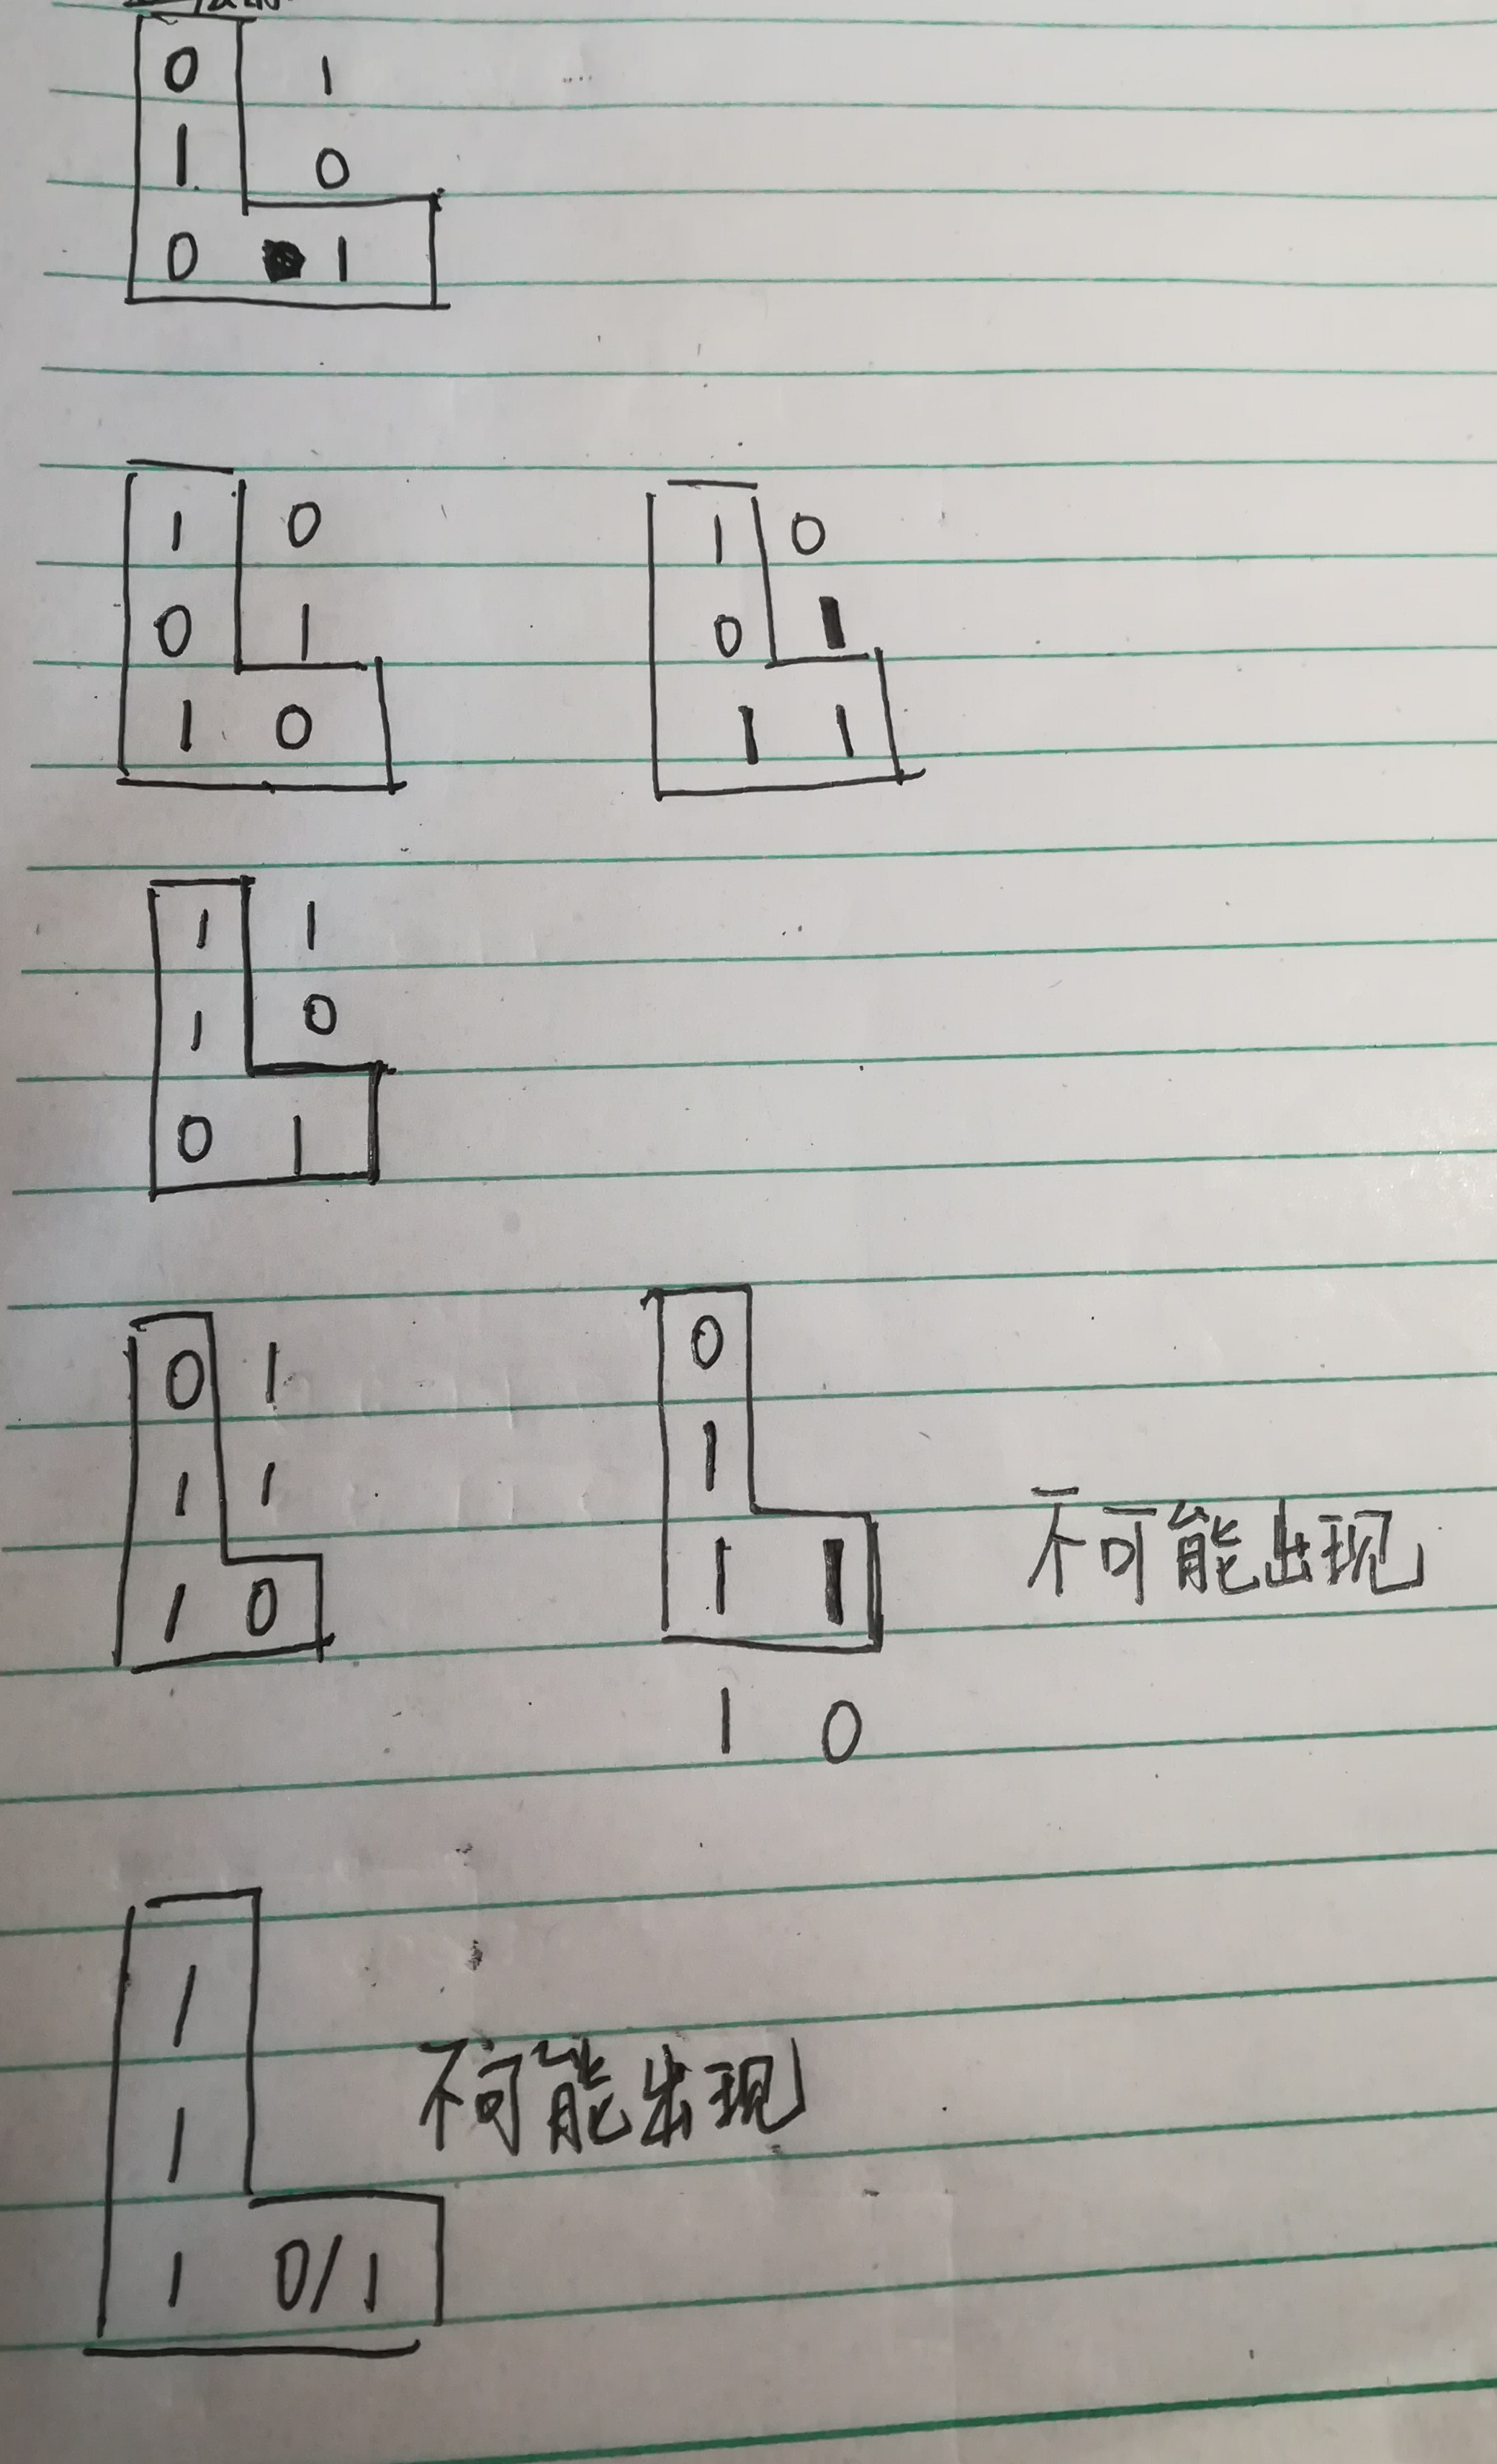 0 1
1 0
0 1
1 0
0 1
1 0
1 0
0 1
1 1
1 1
1 0
0 1
0 1
1 1
1 0
0
1
1 1
1 0
不可能出现
1
1
1 0/1
不可能出现